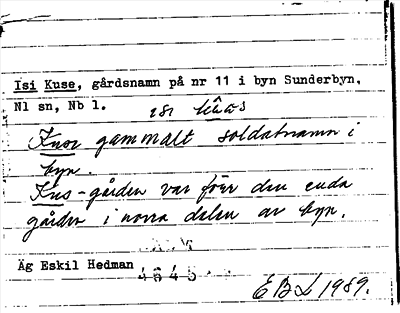 Isi Kuse, gårdsnamn på nr 11 i byn Sunderbyn,
Nl sn, Nb l. isi
Kuse gammalt soldatnamn i
byn.
Kus-gården var förr den enda
gården i norra delen av byn.
Äg Eskil Hedman 4645
EBL 1989.